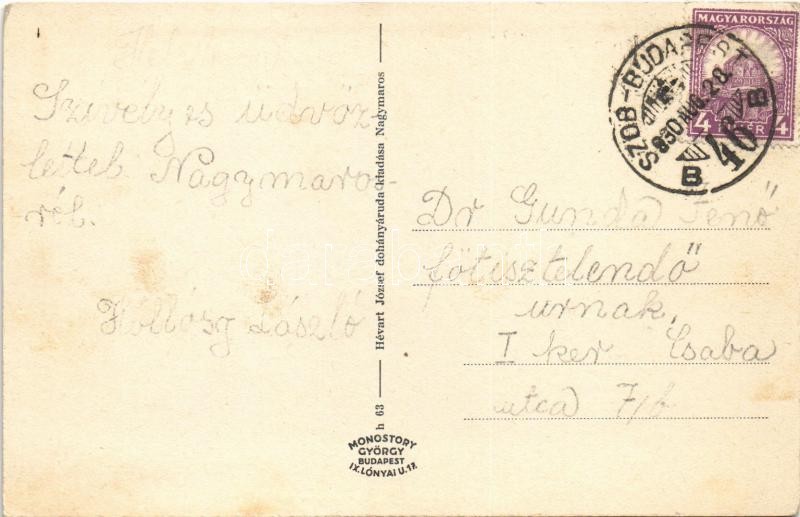 Szívélyes üdvöz-
lettel Nagymaros-
ról.
Hóllósy László
Hévart József dohányáruda kiadása Nagymaros
h 63
MONOSTORY
GYÖRGY
BUDAPEST
IX. LÓNYAI U. 17.
MAGYARORSZÁG
4 4
SZOB-BUDAPEST
930 AUG. 28.
46
B
B
Dr Gunda Jenő
főtisztelendő
urnak,
I ker Csaba
utca 7/b